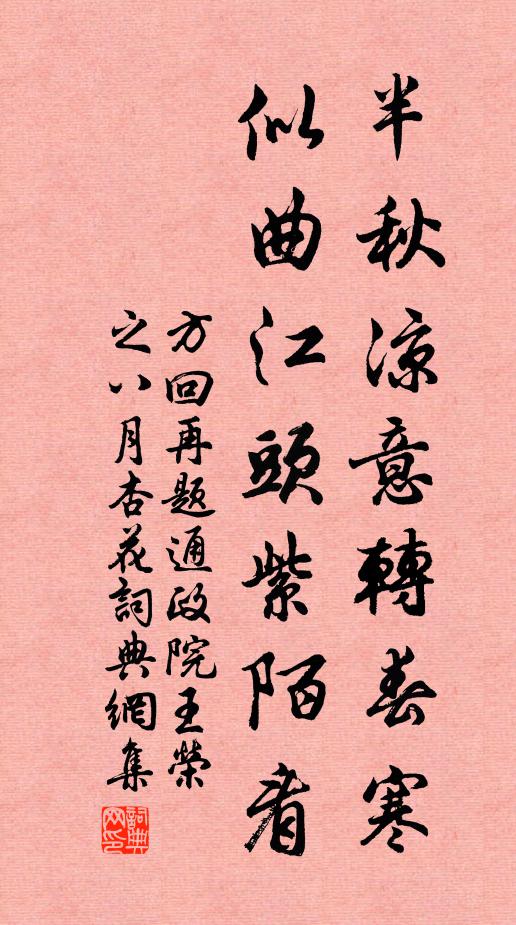 半秋涼意轉春寒
似曲江頭紫陌看
方回再题通政院王榮
之八月杏花詞典網集
詞典网印